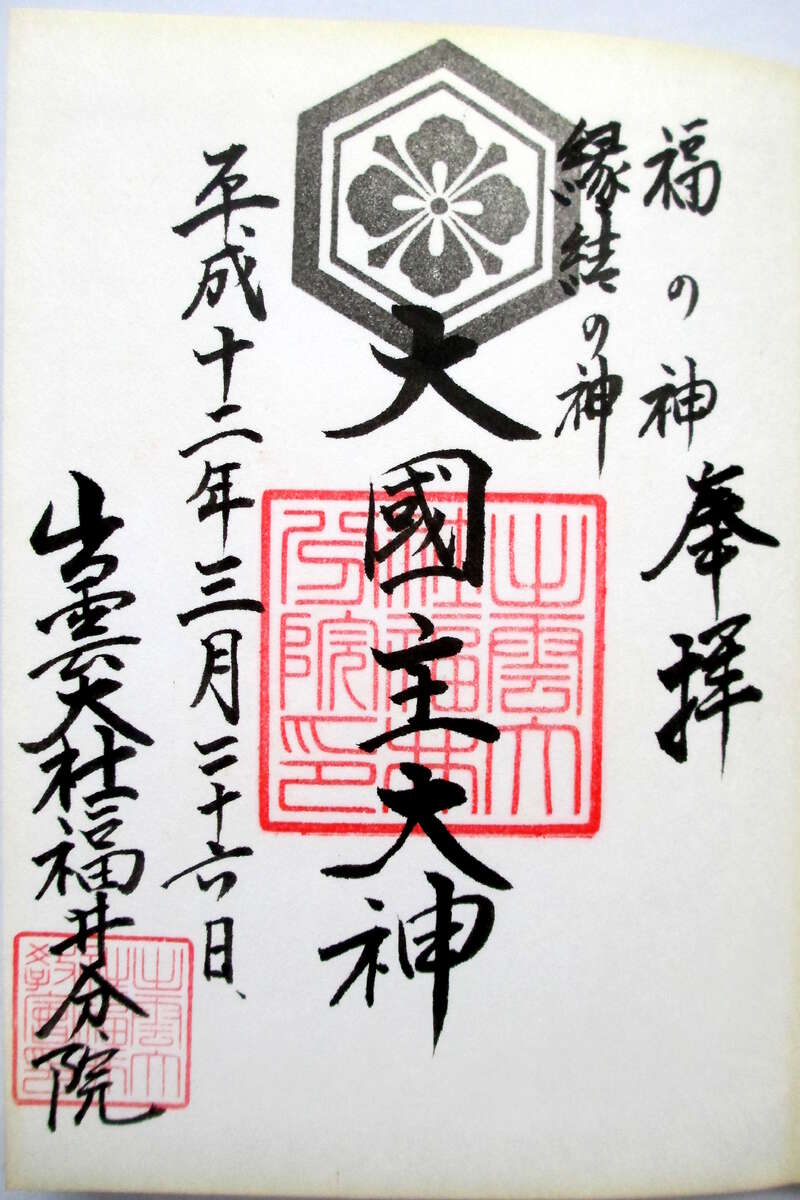 福の神
縁結の神
奉拝
大國主大神
出雲大社福井分院印
平成十二年三月二十六日
出雲大社福井分院